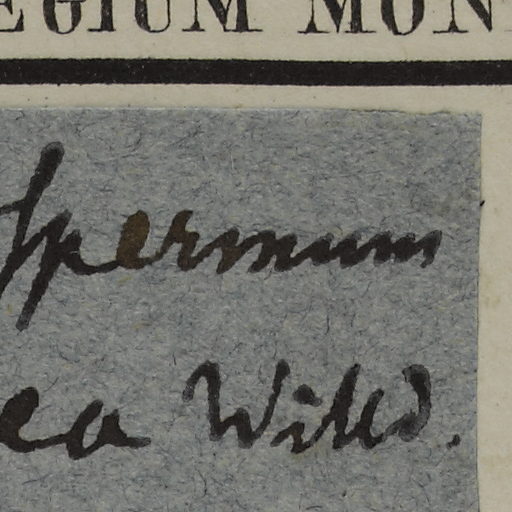 EGIUM MON
spermum
ea Willd.